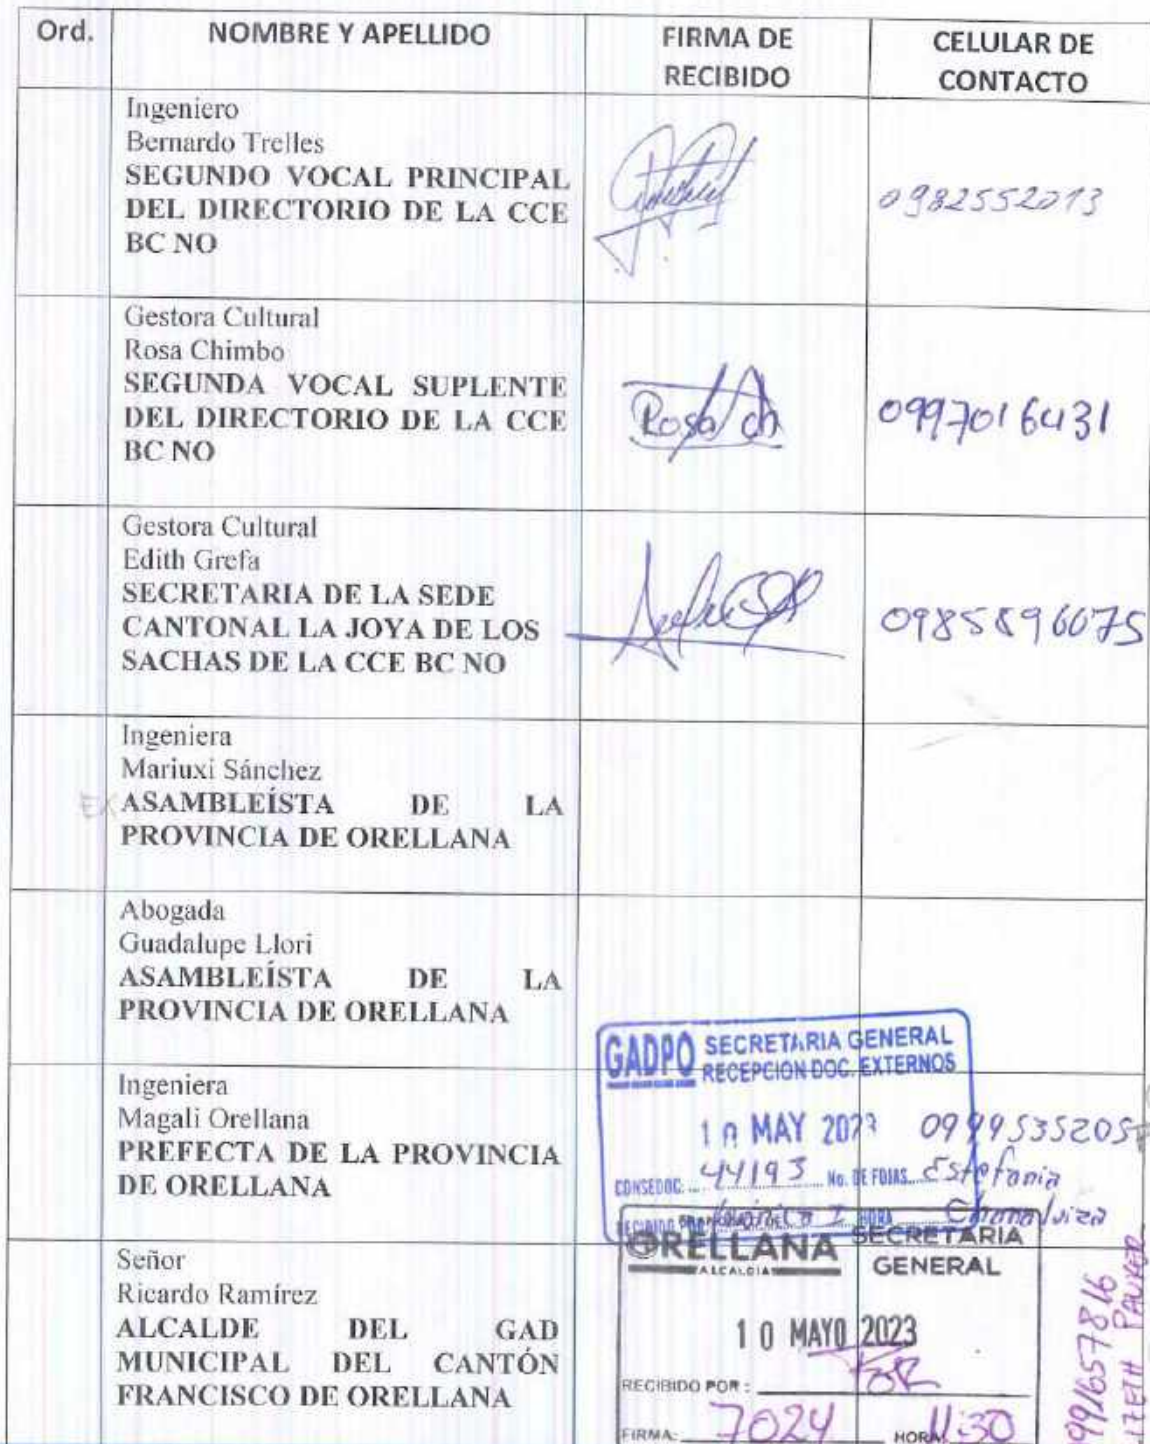 Ord.
NOMBRE Y APELLIDO
FIRMA DE
RECIBIDO
CELULAR DE
CONTACTO
Ingeniero
Bernardo Trelles
SEGUNDO VOCAL PRINCIPAL
DEL DIRECTORIO DE LA CCE
BC NO
0982552013
Gestora Cultural
Rosa Chimbo
SEGUNDA VOCAL SUPLENTE
DEL DIRECTORIO DE LA CCE
BC NO
Rosa Ch
0997016431
Gestora Cultural
Edith Grefa
SECRETARIA DE LA SEDE
CANTONAL LA JOYA DE LOS
SACHAS DE LA CCE BC NO
0985896675
Ingeniera
Mariuxi Sánchez
EX ASAMBLEÍSTA DE LA
PROVINCIA DE ORELLANA
Abogada
Guadalupe Llori
ASAMBLEÍSTA DE LA
PROVINCIA DE ORELLANA
Ingeniera
Magali Orellana
PREFECTA DE LA PROVINCIA
DE ORELLANA
GADPO SECRETARIA GENERAL
RECEPCION DOC. EXTERNOS
10 MAY 2023
0999535205
CONSEDOC. 44193 No. DE FOJAS
Estefania
HORA
Señor
Ricardo Ramírez
ALCALDE DEL GAD
MUNICIPAL DEL CANTÓN
FRANCISCO DE ORELLANA
ORELLANA
ALCALDIA
SECRETARIA
GENERAL
10 MAYO 2023
RECIBIDO POR:
FIRMA: 7024 HORA: 11:30
991657816